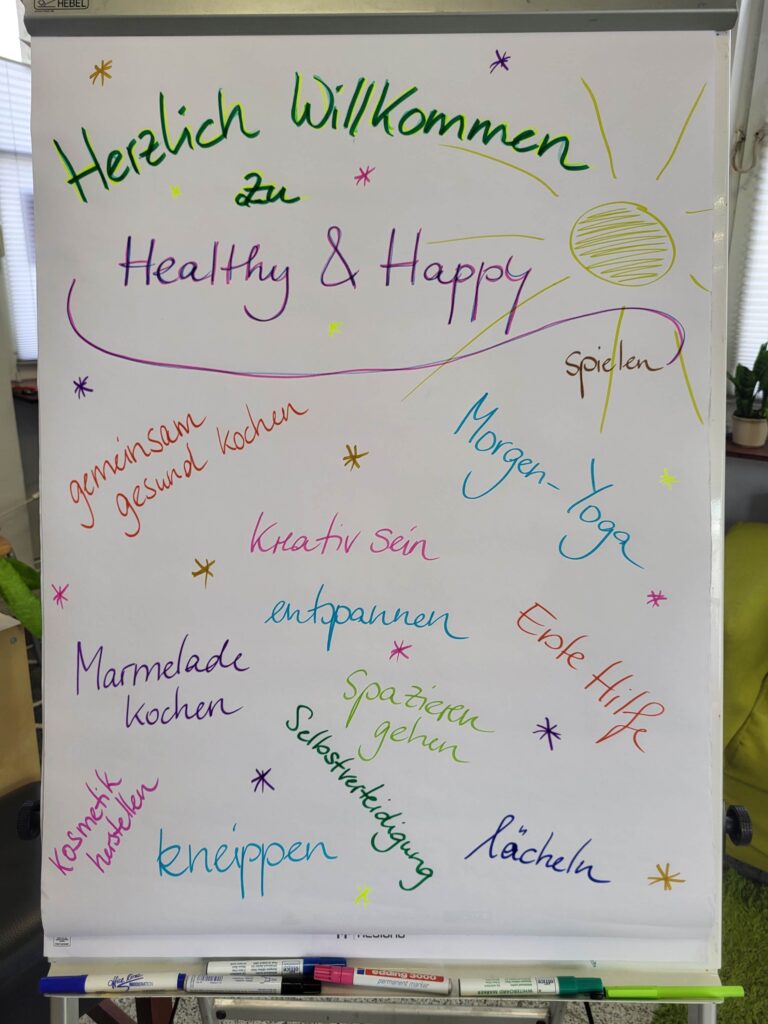 HEBEL
Herzlich Willkommen
zu
Healthy & Happy
spielen
gemeinsam
gesund kochen
Morgen-Yoga
kreativ sein
entspannen
Erste Hilfe
Marmelade
kochen
spazieren
gehen
Selbstverteidigung
Kosmetik
herstellen
kneippen
lächeln
edding 3000
permanent marker